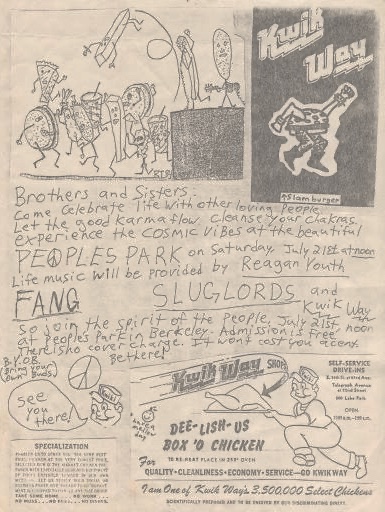 Kwik
Way
↑Slamburger
Brothers and Sisters:
Come Celebrate life with other loving people.
Let the good Karma flow cleanse your chakras.
experience the COSMIC VIBES at the beautiful
PEOPLES PARK on Saturday, July 21st at noon
Life music will be provided by Reagan Youth
FANG SLUGLORDS and
Kwik Way
so join the spirit of the people. July 21st, noon
at Peoples Park in Berkeley. Admission is free
There's no cover charge. It wont cost you a cent.
Be there!
B.Y.O.B.
Bring your
own Buds!
See
you
there!
Kwik Way SHOPS
SELF-SERVICE
DRIVE-INS
Telegraph Avenue
OPEN
DEE-LISH-US
BOX 'O CHICKEN
TO RE-HEAT PLACE IN 250° OVEN
For
QUALITY-CLEANLINESS-ECONOMY-SERVICE-GO KWIK WAY
I am One of Kwik Way's 3,500,000 Select Chickens
SCIENTIFICALLY PREPARED AND TO BE ENJOYED BY OUR DISCRIMINATING GUESTS
SPECIALIZATION
TAKE SOME HOME